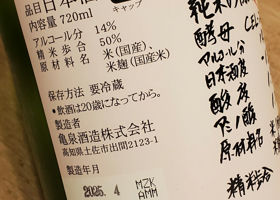 品目 日本酒
キャップ
内容量 720ml
アルコール分 14%
精米歩合 50%
原材料名 米(国産)、
米麹(国産米)
保存方法 要冷蔵
•飲酒は20歳になってから。
製造者
亀泉酒造株式会社
高知県土佐市出間2123-1
製造年月
2025.4 MZK
AMM
純米
酵母 CEL
アルコール分
日本酒度
酸度
アミノ酸
原材料名
精米歩合